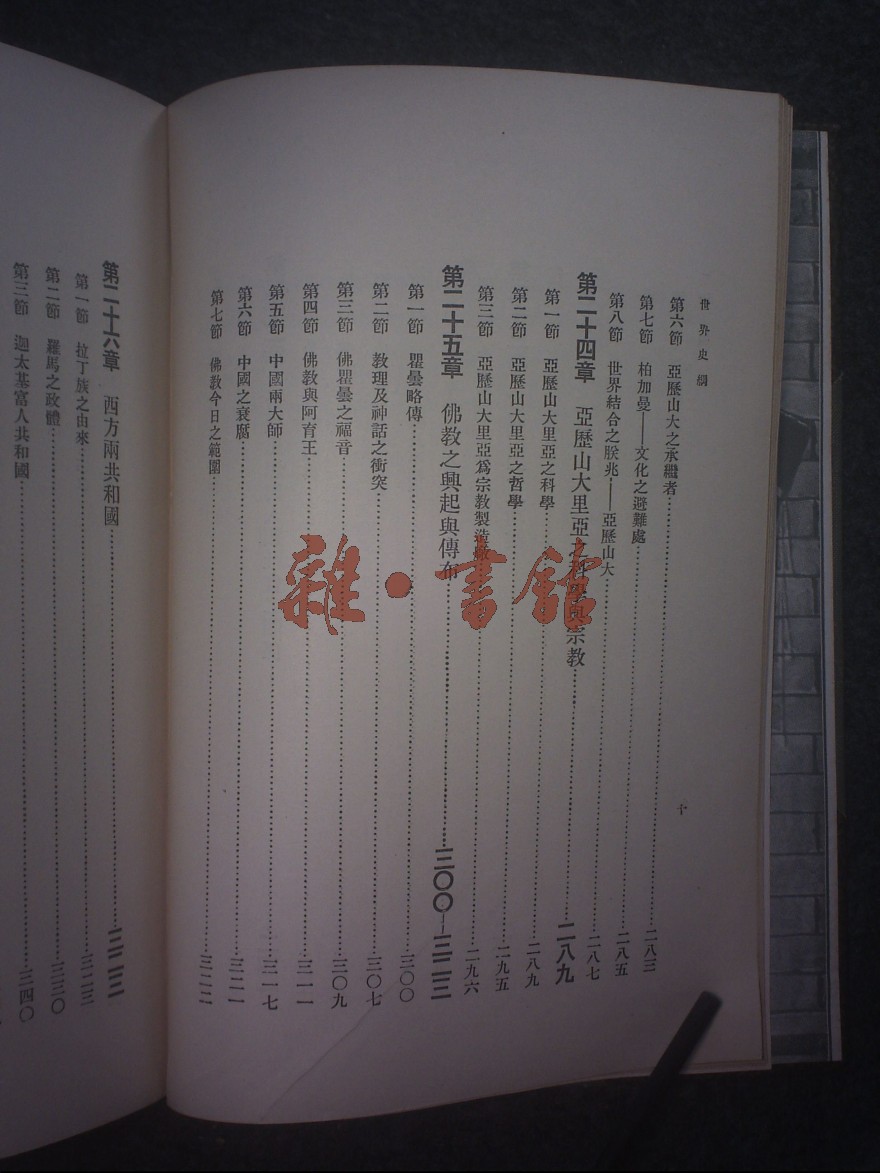 世界史綱
十
第六節　亞歷山大之承繼者……二八三
第七節　柏加曼——文化之避難處……二八五
第八節　世界結合之朕兆——亞歷山大……二八七
第二十四章　亞歷山大里亞之科學與宗教……二八九
第一節　亞歷山大里亞之科學……二八九
第二節　亞歷山大里亞之哲學……二九五
第三節　亞歷山大里亞爲宗教製造廠……二九六
第二十五章　佛教之興起與傳布……三〇〇—三二三
第一節　瞿曇略傳……三〇〇
第二節　教理及神話之衝突……三〇七
第三節　佛瞿曇之福音……三〇九
第四節　佛教與阿育王……三一一
第五節　中國兩大師……三一七
第六節　中國之衰腐……三二一
第七節　佛教今日之範圍……三二二
第二十六章　西方兩共和國……三二三
第一節　拉丁族之由來……三二三
第二節　羅馬之政體……三三〇
第三節　迦太基富人共和國……三四〇
雜·書館